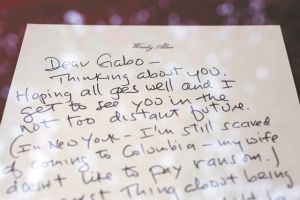 Woody Allen
Dear Gabo –
Thinking about you.
Hoping all goes well and I
get to see you in the
not too distant future.
(In New York – I'm still scared
of coming to Columbia – my wife
doesn't like to pay ransom.)
Thing about being